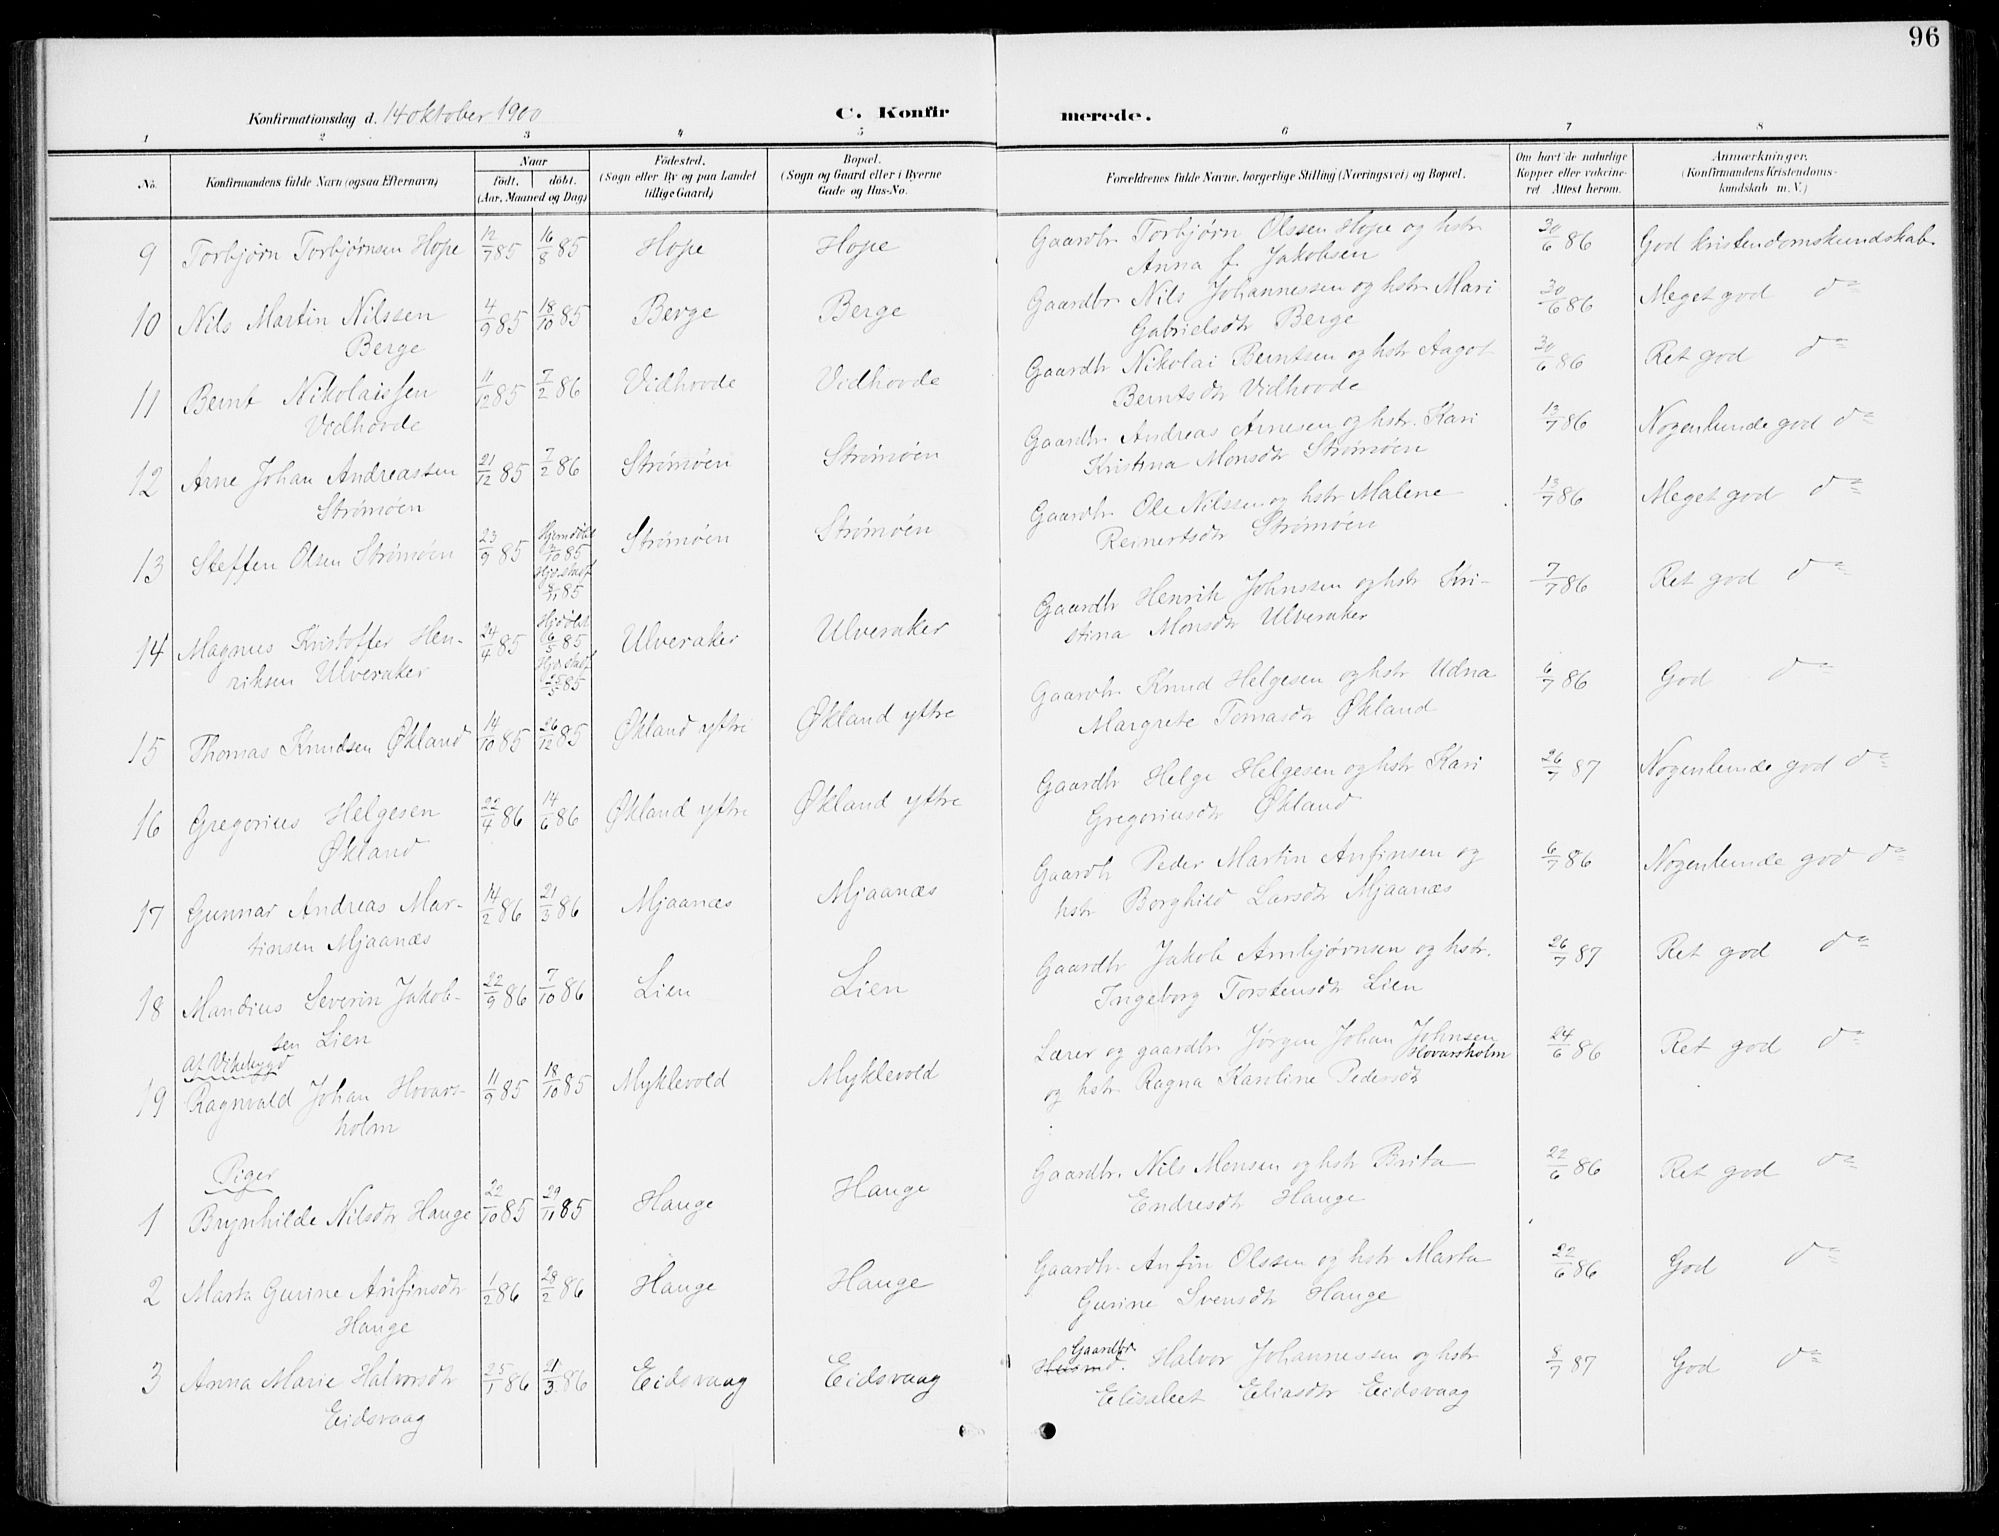 96
Konfirmationsdag d. 14 oktober 1900 C. Konfir merede.
1 2 3 4 5 6 7 8
No. Konfirmandens fulde Navn (ogsaa Efternavn) Naar født. døbt. (Aar, Maaned og Dag) Fødested. (Sogn eller By og paa Landet tillige Gaard) Bopæl. (Sogn og Gaard eller i Byerne Gade og Hus-No. Forældrenes fulde Navne, borgerlige Stilling (Næringsvei) og Bopæl. Om havt de naturlige Kopper eller vakcineret. Attest herom. Anmærkninger. (Konfirmandens Kristendomskundskab m. V.)
9 Torbjørn Torbjørnsen Hope 12/7 85 16/8 85 Hope Hope Gaardbr. Torbjørn Olssen Hope og hstr 30/6 86 God kristendomskundskab
Anna f. Jakobsen
10 Nils Martin Nilssen 4/9 85 18/10 85 Berge Berge Gaardbr Nils Johannessen og hstr Mari 30/6 86 Meget god do
Berge Gabrielsdtr Berge
11 Bernt Nikolaissen 11/12 85 7/2 86 Vidhovde Vidhovde Gaardbr Nikolai Berntsen og hstr Aagot 30/6 86 Ret god do
Vidhovde Berntsdtr Vidhovde
12 Arne Johan Andreassen 21/12 85 7/2 86 Strømøen Strømøen Gaardbr. Andreas Arnesen og hstr. Kari 13/7 86 Nogenlunde god do
Strømøen Kristina Monsdtr Strømøen
13 Steffen Olsen Strømøen 23/9 85 Hjemdøbt /10 85 Strømøen Strømøen Gaardbr. Ole Nilssen og hstr Malene 13/7 86 Meget god do
Hjd. stadf. 8/11 85 Reinertsdtr Strømøen
14 Magnus Kristoffer Hen- 24/4 85 Hjdøbt 6/5 85 Ulveraker Ulveraker Gaardbr Henrik Johnssen og hstr Kri- 7/7 86 Ret god do
riksen Ulveraker Hjd. stadf 25/5 85 stina Monsdtr Ulveraker
15 Thomas Knudsen Økland 14/10 85 26/12 85 Økland yttre Økland yttre Gaardbr. Knud Helgesen og hstr Udna 6/7 86 God do
Margrete Tomasdtr Økland
16 Gregorius Helgesen 22/4 86 14/6 86 Økland yttre Økland yttre Gaardbr Helge Helgesen og hstr Kari 26/7 87 Nogenlunde god do
Økland Gregoriusdtr Økland
17 Gunnar Andreas Mar- 14/2 86 21/3 86 Mjaanæs Mjaanæs Gaardb Peder Martin Anfinsen og 6/7 86 Nogenlunde god do
tinsen Mjaanæs hstr Borghild Larsdtr Mjaanæs
18 Mandius Severin Jakob- 22/9 86 7/10 86 Lien Lien Gaardbr Jakob Arnbjørnsen og hstr. 26/7 87 Ret god do
sen Lien Ingeborg Torstensdtr Lien
Af Vikebygd
19 Ragnvald Johan Hovars- 11/9 85 18/10 85 Myklevold Myklevold Lærer og gaardbr. Jørgen Johan Johnsen Hovarsholm 24/6 86 Ret god do
holm og hstr Ragna Karoline Pedersdtr
Piger
1 Brynhilde Nilsdtr Hauge 22/10 85 29/11 85 Hauge Hauge Gaardbr. Nils Monsen og hstr Brita 22/6 86 Ret god do
Endresdtr Hauge
2 Marta Gurine Anfinsdtr 1/2 86 28/2 86 Hauge Hauge Gaardbr. Anfin Olssen og hstr Marta 22/6 86 God do
Hauge Gurine Svensdtr Hauge
3 Anna Marie Halvorsdtr 25/1 86 21/3 86 Eidsvaag Eidsvaag Husmd. Gaardbr. Halvor Johannessen og hstr 8/7 87 God do
Eidsvaag Elisabet Eliasdtr Eidsvaag